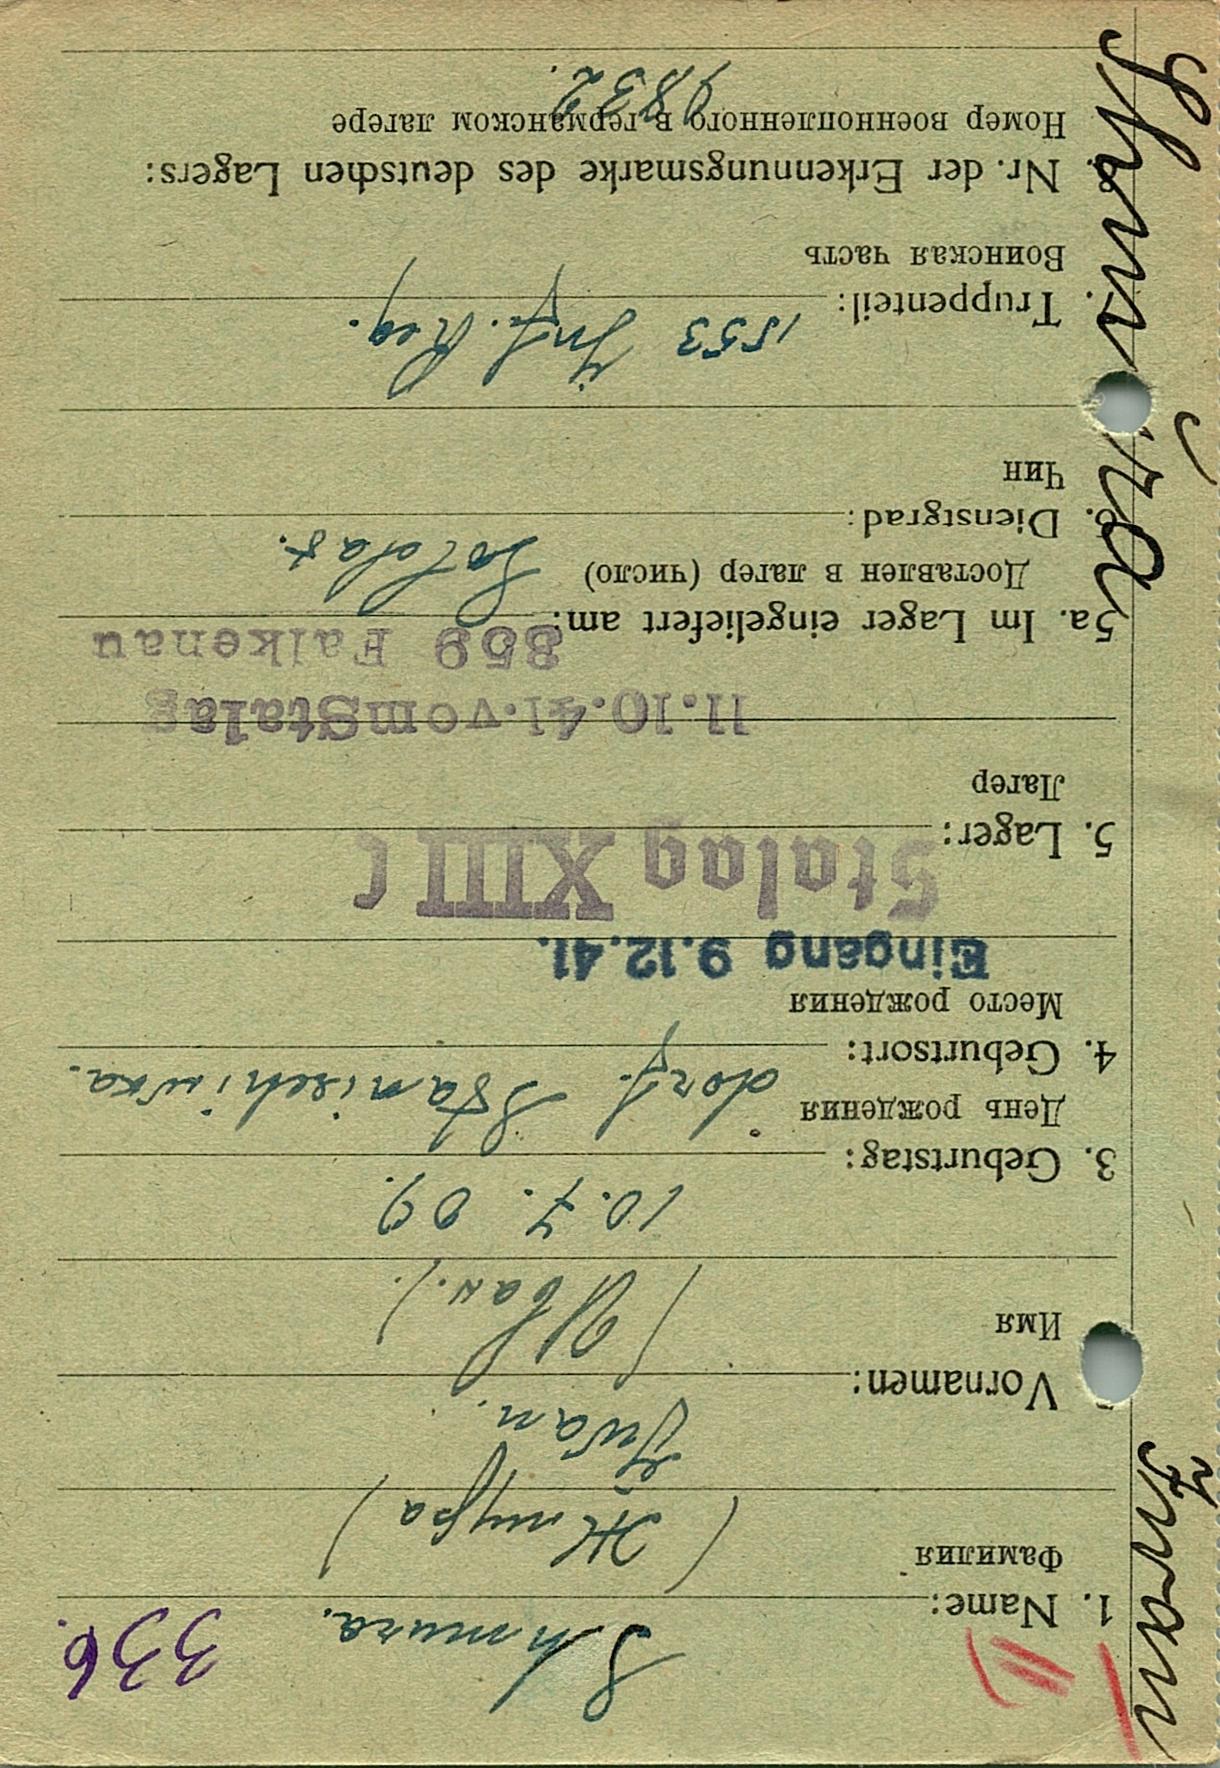 336.
1. Name: Shmura.
Фамилия
(Жмура)
Vornamen: Iwan.
Имя
(Иван.).
3. Geburtstag: 10. 7. 09.
День рождения
4. Geburtsort: dorf. Stanischiwka.
Место рождения
Eingang 9.12.41.
5. Lager: Stalag XIII C
Лагер
11.10.41.vom Stalag
359 Falkenau
5a. Im Lager eingeliefert am:
Доставлен в лагер (число)
6. Dienstgrad: Soldat.
Чин
Truppenteil: 1553 Inf. Reg.
Воинская часть
Nr. der Erkennungsmarke des deutschen Lagers:
Номер военнопленного в германском лагере
9832.
Shmura, Iwan